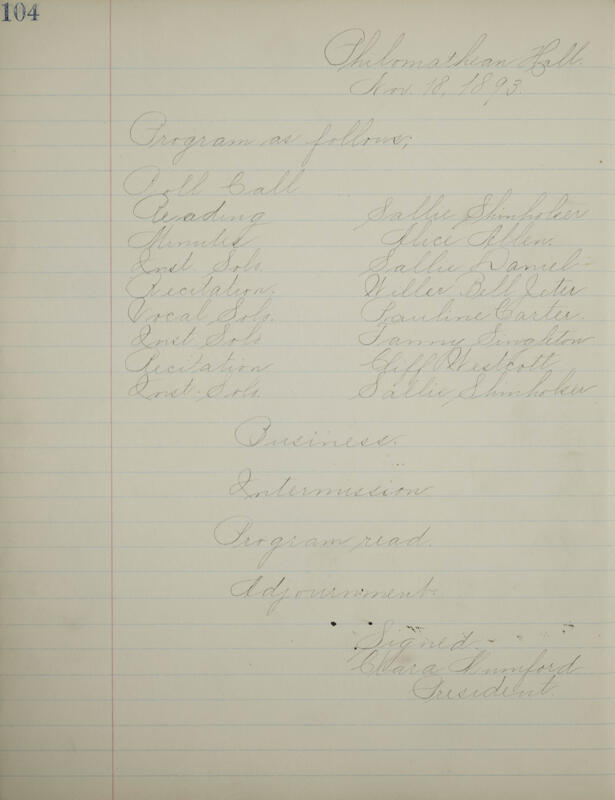 104
Philomathean Hall.
Nov. 18, 1893.
Program as follows;
Roll Call
Reading Sallie Shinholser
Minutes Alice Allen.
Inst. Solo Sallie Daniel-
Recitation. Willer Bell Jeter
Vocal Solo. Pauline Carter.
Inst Solo Fanny Singleton
Recitation Cliff Westcott
Inst. Solo. Sallie Shinholser
Business.
Intermission
Program read.
Adjournment.
Signed-
Clara Mumford
President.